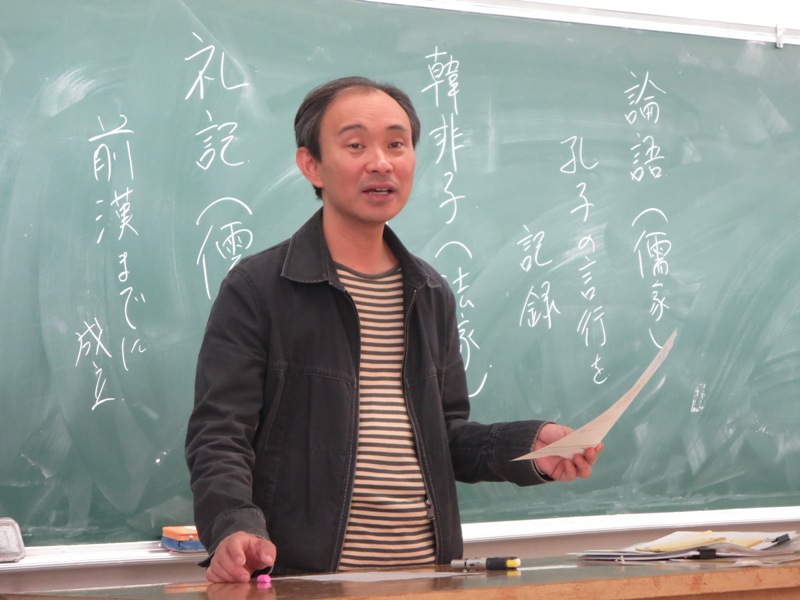 論語（儒家）
孔子の言行を
記録
韓非子（法家）
礼記（儒
前漢までに
成立